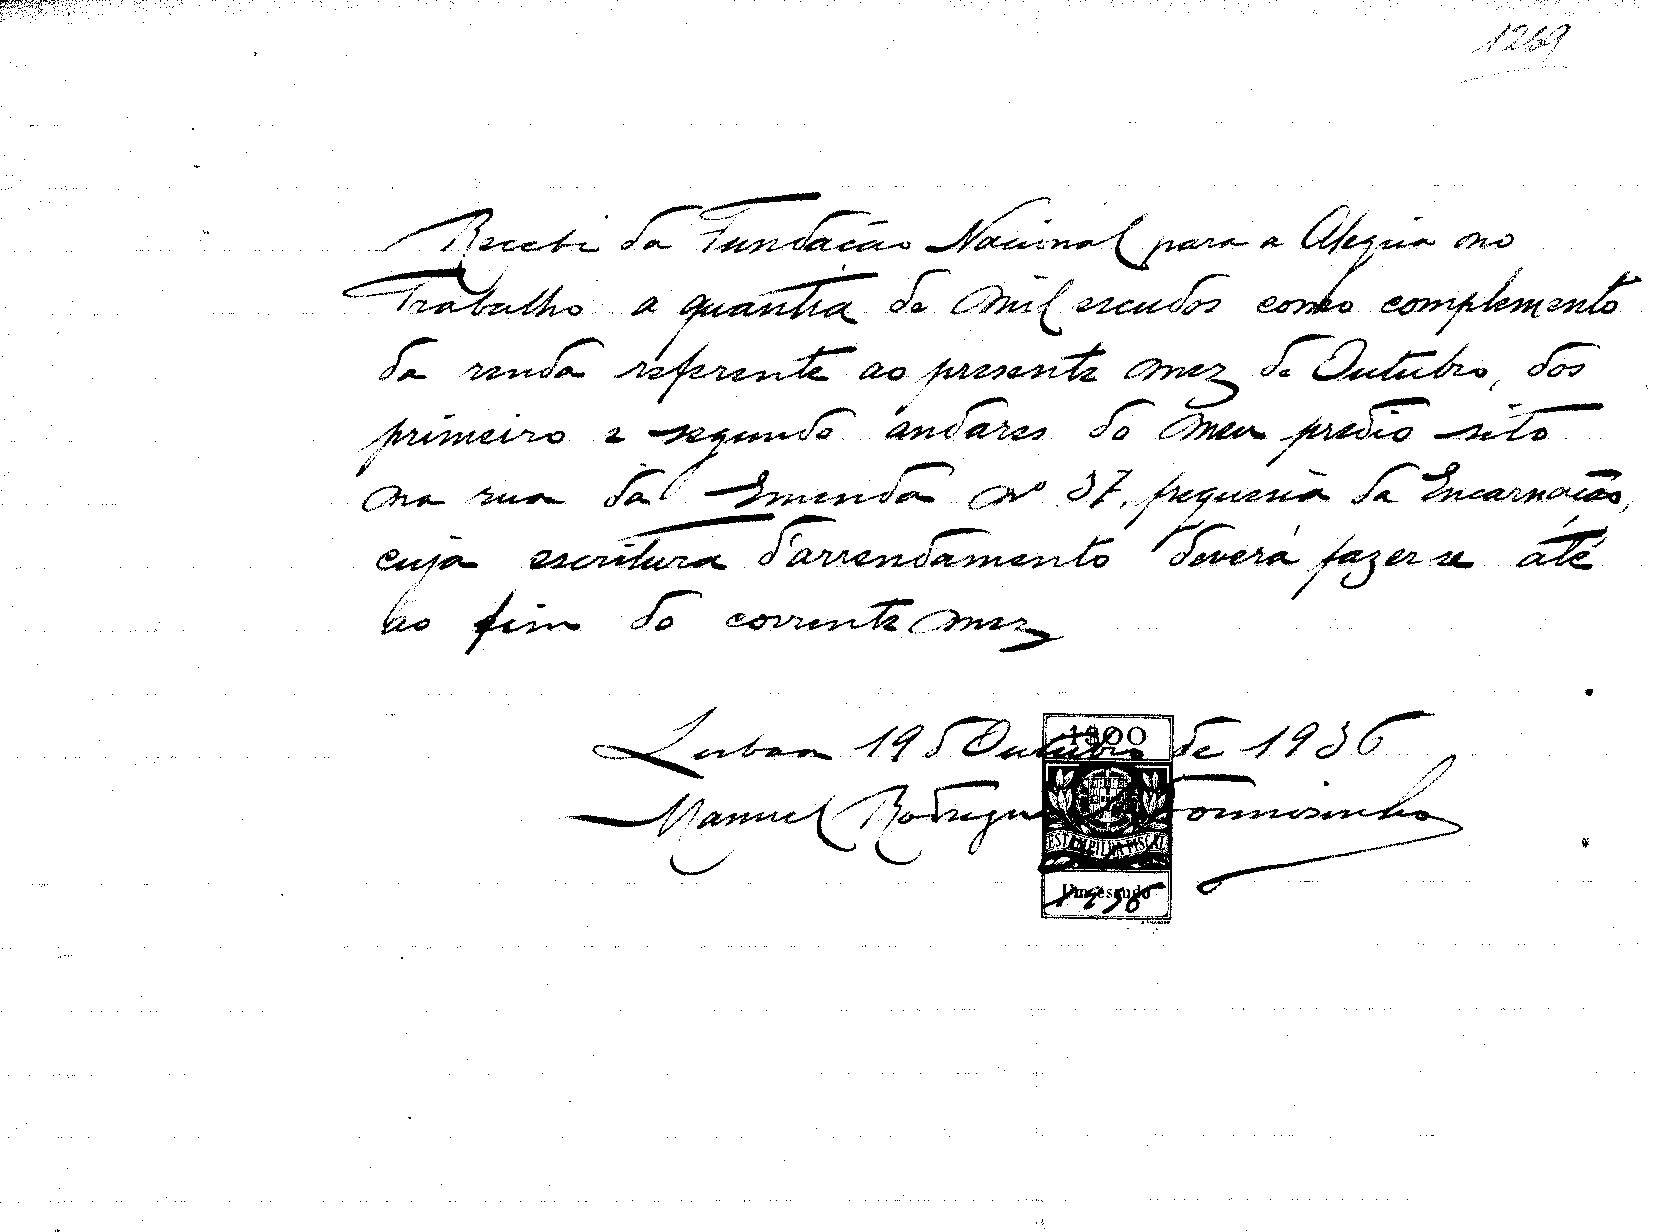 1269
Recebi da Fundação Nacional para a Alegria no
Trabalho a quantia de mil escudos como complemento
da renda referente ao presente mez de Outubro, dos
primeiro e segundo andares do meu predio sito
na rua da Emenda nº 37, freguesia da Encarnação,
cuja escritura d'arrendamento deverá fazer se até
ao fim do corrente mez
Lisboa 19 d Outubro de 1936
1$00
Manuel Rodrigues
ESTAMPILHA FISCAL
Um escudo